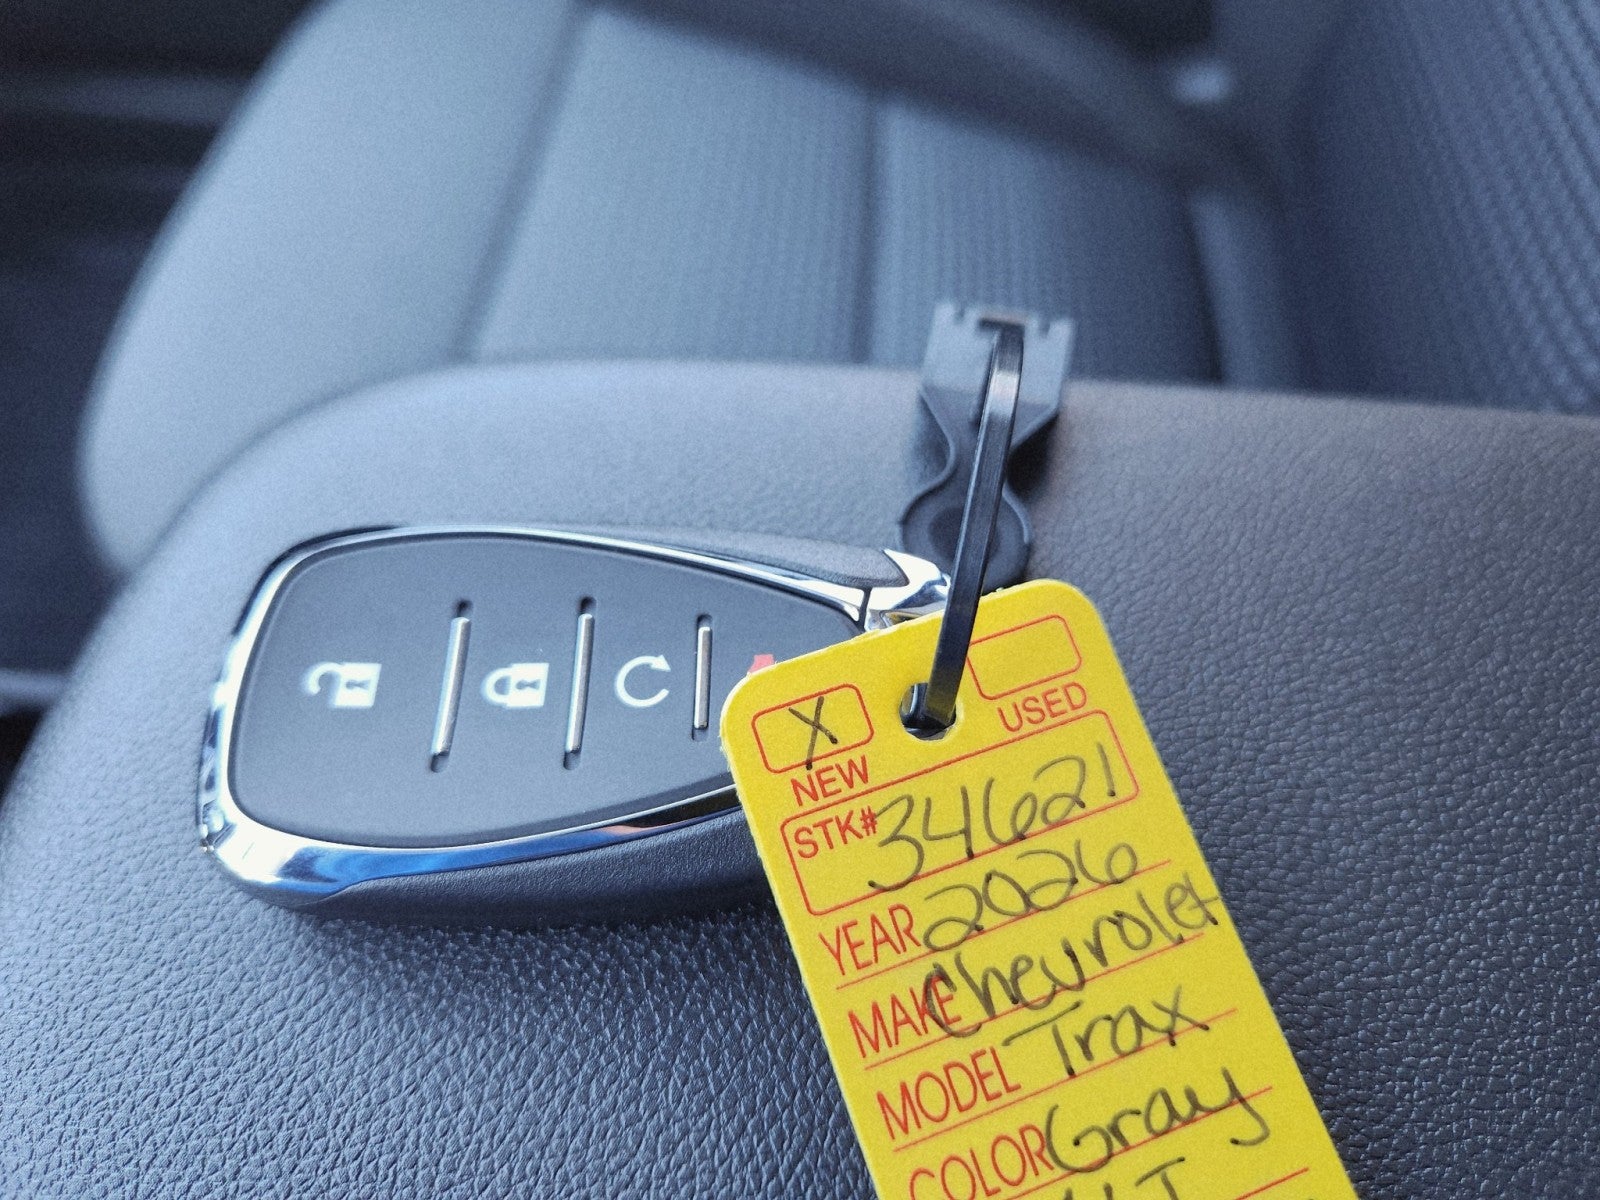 X
NEW
USED
STK# 34621
YEAR 2026
MAKE Chevrolet
MODEL Trax
COLOR Gray